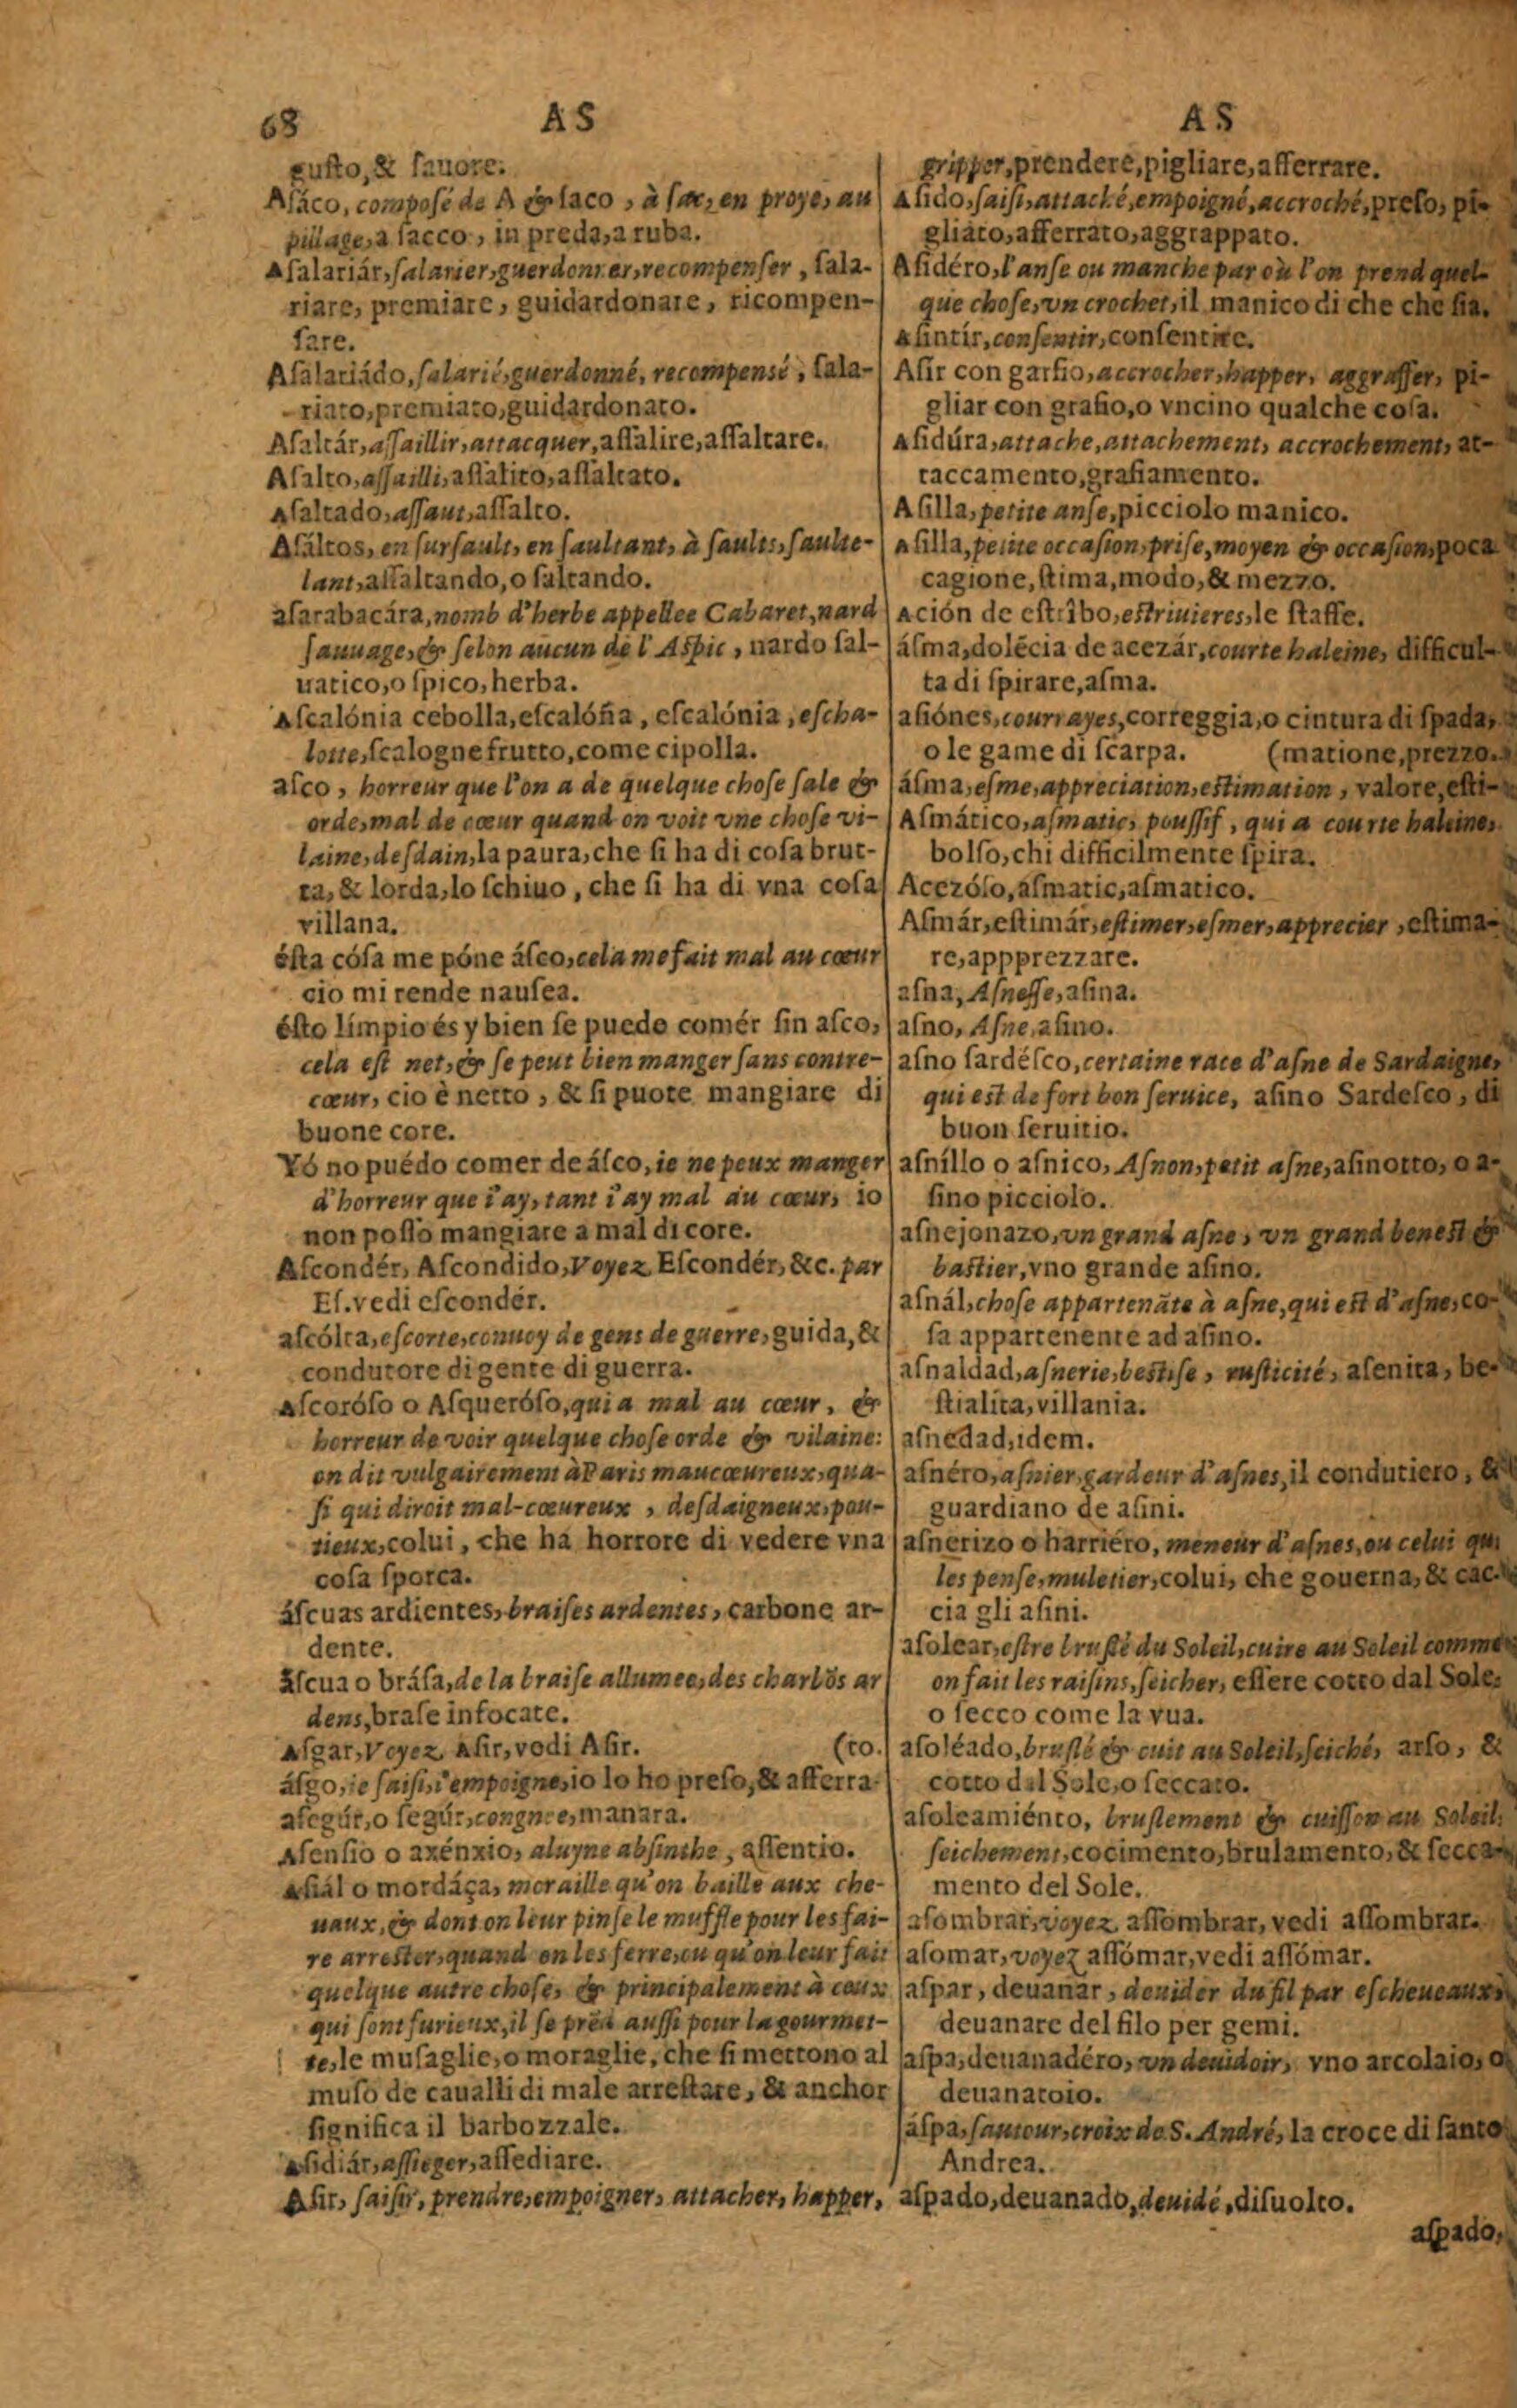 68 AS
guſto, & ſauore.
Aſáco, compoſé de A & ſaco, à ſac, en proye, au
pillage, a ſacco, in preda, a ruba.
Aſalariár, ſalarier, guerdonner, recompenſer, ſala-
riare, premiare, guidardonare, ricompen-
ſare.
Aſalariádo, ſalarié, guerdonné, recompensé, ſala-
riato, premiato, guidardonato.
Aſaltár, aſſaillir, attacquer, aſſalire, aſſaltare.
Aſalto, aſſailli, aſſalito, aſſaltato.
Aſaltado, aſſaut, aſſalto.
Aſáltos, en ſurſault, en ſaultant, à ſaults, ſaulte-
lant, aſſaltando, o ſaltando.
aſarabacára, nomb d'herbe appellee Cabaret, nard
ſauuage, & ſelon aucun de l'Aſpic, nardo ſal-
uatico, o ſpico, herba.
Aſcalónia cebolla, eſcalóña, eſcalónia, eſcha-
lotte, ſcalogne frutto, come cipolla.
aſco, horreur que l'on a de quelque choſe ſale &
orde, mal de cœur quand on voit vne choſe vi-
laine, deſdain, la paura, che ſi ha di coſa brut-
ta, & lorda, lo ſchiuo, che ſi ha di vna coſa
villana.
éſta cóſa me póne áſco, cela me fait mal au cœur
cio mi rende nauſea.
éſto límpio és y bien ſe puede comér ſin aſco,
cela eſt net, & ſe peut bien manger ſans contre-
cœur, cio è netto, & ſi puote mangiare di
buone core.
Yó no puédo comer de áſco, ie ne peux manger
d'horreur que i'ay, tant i'ay mal au cœur, io
non poſſo mangiare a mal di core.
Aſcondér, Aſcondido, Voyez Eſcondér, &c. par
Eſ. vedi eſcondér.
aſcólta, eſcorte, conuoy de gens de guerre, guida, &
condutore di gente di guerra.
Aſcoróſo o Aſqueróſo, qui a mal au cœur, &
horreur de voir quelque choſe orde & vilaine:
on dit vulgairement à Paris maucœureux, qua-
ſi qui diroit mal-cœureux, deſdaigneux, pou-
tieux, colui, che ha horrore di vedere vna
coſa ſporca.
áſcuas ardientes, braiſes ardentes, carbone ar-
dente.
áſcua o bráſa, de la braiſe allumee, des charbõs ar
dens, braſe infocate.
Aſgar, Voyez Aſir, vedi Aſir. (to.
áſgo, ie ſaiſi, i'empoigne, io lo ho preſo, & afferra-
aſegúr, o ſegúr, congnee, manara.
Aſenſio o axénxio, aluyne abſinthe, aſſentio.
Aſiál o mordáça, moraille qu'on baille aux che-
uaux, & dont on leur pinſe le muffle pour les fai-
re arreſter, quand on les ferre, ou qu'on leur fait
quelque autre choſe, & principalement à ceux
qui ſont furieux, il ſe prẽd auſſi pour la gourmet-
te, le muſaglie, o moraglie, che ſi mettono al
muſo de caualli di male arreſtare, & anchor
ſignifica il barbozzale.
Aſidiár, aſſieger, aſſediare.
Aſir, ſaiſir, prendre, empoigner, attacher, happer,
AS
gripper, prendere, pigliare, afferrare.
Aſido, ſaiſi, attaché, empoigné, accroché, preſo, pi-
gliato, afferrato, aggrappato.
Aſidéro, l'anſe ou manche par où l'on prend quel-
que choſe, vn crochet, il manico di che che ſia.
Aſintír, conſentir, conſentire.
Aſir con garfio, accrocher, happer, aggraffer, pi-
gliar con grafio, o vncino qualche coſa.
Aſidúra, attache, attachement, accrochement, at-
taccamento, grafiamento.
Aſilla, petite anſe, picciolo manico.
Aſilla, petite occaſion, priſe, moyen & occaſion, poca
cagione, ſtima, modo, & mezzo.
Ación de eſtríbo, eſtriuieres, le ſtaffe.
áſma, dolécia de acezár, courte haleine, difficul-
ta di ſpirare, aſma.
aſiónes, courrayes, correggia, o cintura di ſpada,
o le game di ſcarpa. (matione, prezzo.
áſma, eſme, appreciation, eſtimation, valore, eſti-
Aſmático, aſmatic, pouſſif, qui a courte haleine,
bolſo, chi difficilmente ſpira.
Acezóſo, aſmatic, aſmatico.
Aſmár, eſtimár, eſtimer, eſmer, apprecier, eſtima-
re, appprezzare.
aſna, Aſneſſe, aſina.
aſno, Aſne, aſino.
aſno ſardéſco, certaine race d'aſne de Sardaigne,
qui eſt de fort bon ſeruice, aſino Sardeſco, di
buon ſeruitio.
aſníllo o aſnico, Aſnon, petit aſne, aſinotto, o a-
ſino picciolo.
aſnejonazo, vn grand aſne, vn grand beneſt &
baſtier, vno grande aſino.
aſnál, choſe appartenãte à aſne, qui eſt d'aſne, co-
ſa appartenente ad aſino.
aſnaldad, aſnerie, beſtiſe, ruſticité, aſenita, be-
ſtialita, villania.
aſnedad, idem.
aſnéro, aſnier, gardeur d'aſnes, il condutiero, &
guardiano de aſini.
aſnerizo o harriéro, meneur d'aſnes, ou celui qui
les penſe, muletier, colui, che gouerna, & cac-
cia gli aſini.
aſolear, eſtre bruſlé du Soleil, cuire au Soleil comme
on fait les raiſins, ſeicher, eſſere cotto dal Sole,
o ſecco come la vua.
aſoléado, bruſlé & cuit au Soleil, ſeiché, arſo, &
cotto dal Sole, o ſeccato.
aſoleamiénto, bruſlement & cuiſſon au Soleil,
ſeichement, cocimento, brulamento, & ſecca-
mento del Sole.
aſombrar, voyez aſſombrar, vedi aſſombrar.
aſomar, voyez aſſómar, vedi aſſómar.
aſpar, deuanar, deuider du fil par eſcheueaux,
deuanare del filo per gemi.
aſpa, deuanadéro, vn deuidoir, vno arcolaio, o
deuanatoio.
áſpa, ſautour, croix de S. André, la croce di ſanto
Andrea.
aſpado, deuanado, deuidé, diſuolto.
aſpado,